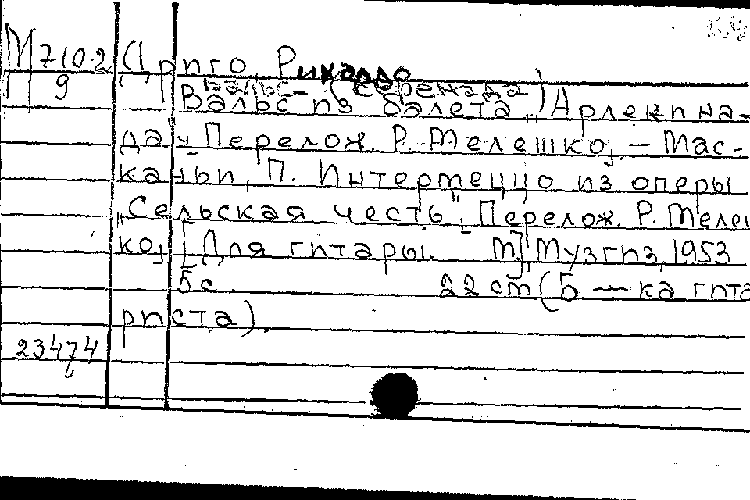 М 710.2 Дриго, Рикардо
9 Вальс (серенада)
Вальс из балета „Арлекина-
да". Перелож. Р. Мелешко, – Мас-
каньи, П. Интермеццо из оперы
„Сельская честь". Перелож. Р. Мелеш
ко, [Для гитары. М] Музгиз, 1953
5 с. 22 cm (Б – ка гита
риста).
23474